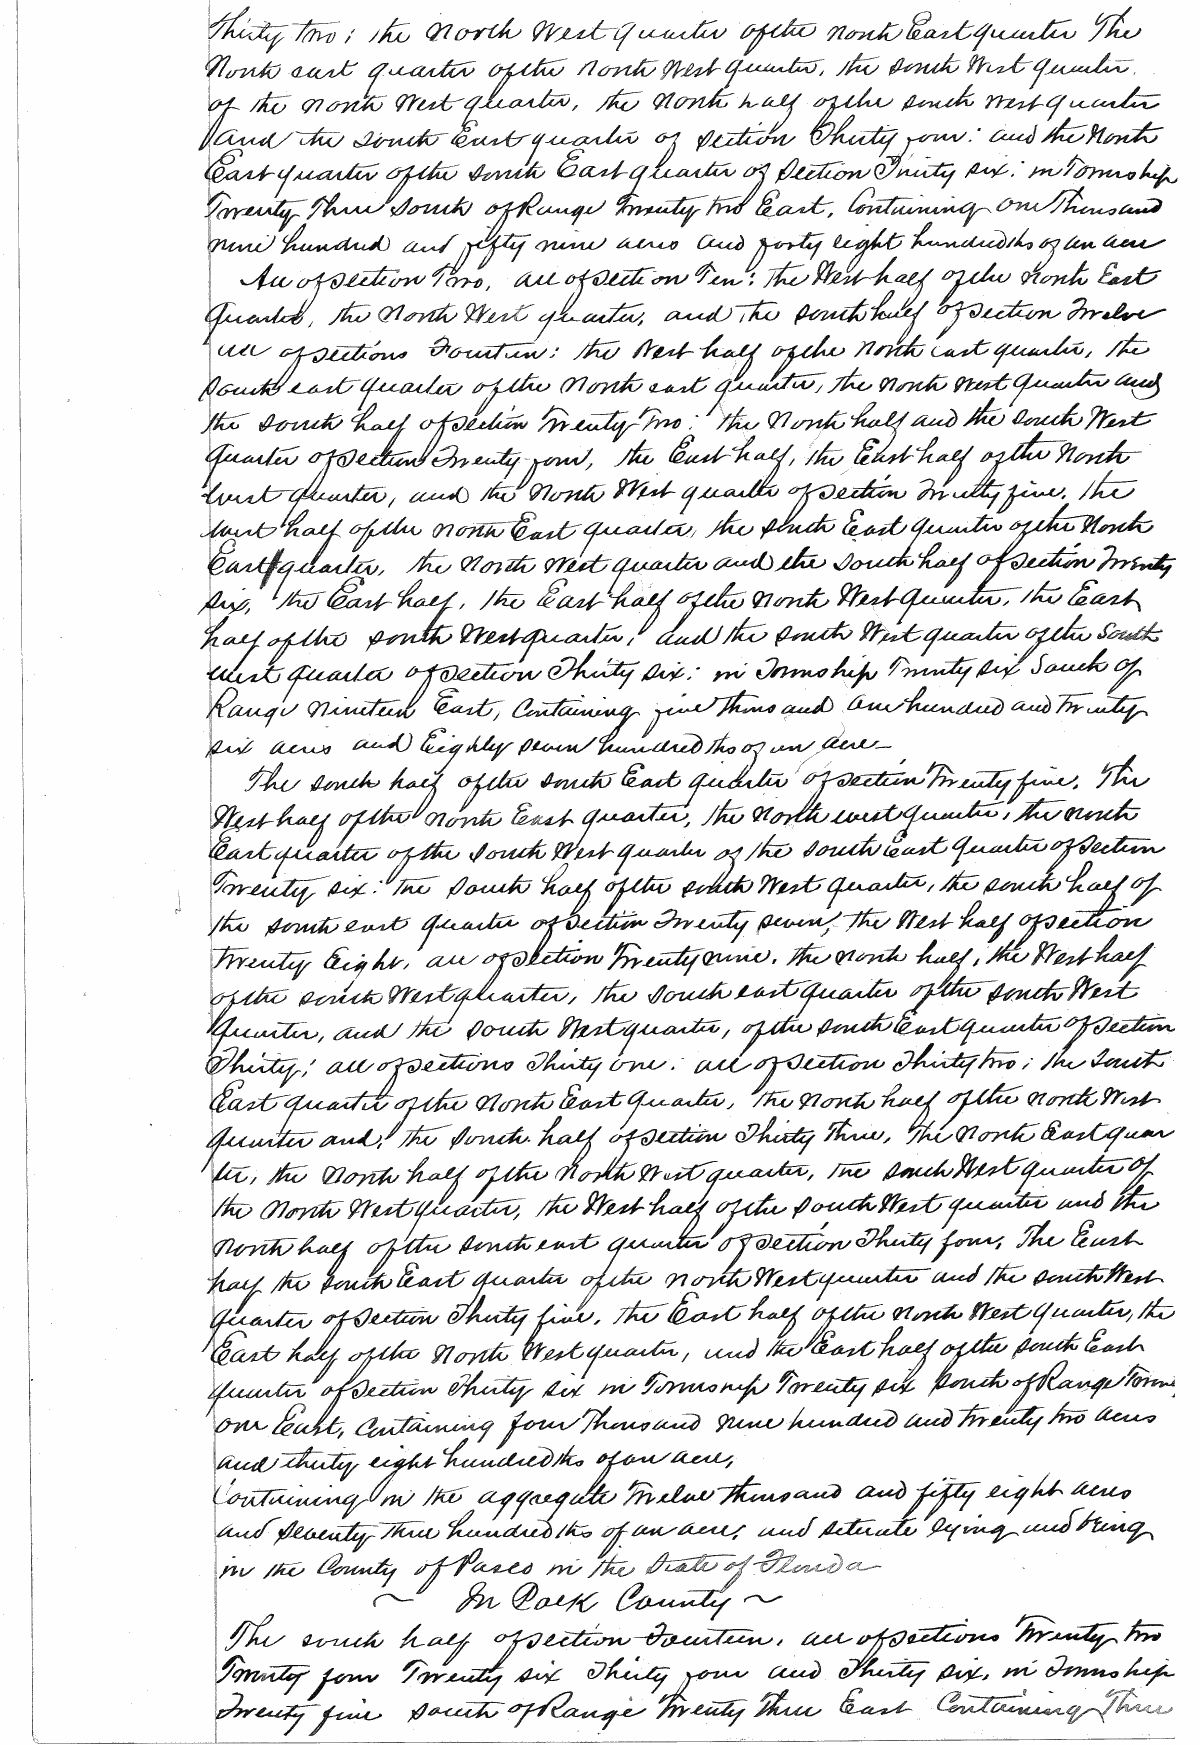 Thirty two; the North West quarter of the North East quarter The
North east quarter of the North West quarter, the South West quarter.
of the North West quarter, the North half of the South West quarter
and the South East quarter of Section Thirty four: and the North
East quarter of the South East quarter of Section Thirty six: in Township
Twenty Three South of Range Twenty two East, Containing one Thousand
nine hundred and fifty nine acres and forty eight hundredths of an acre
All of Section Two, all of Section Ten: the West half of the North East
Quarter, the North West quarter, and the South half of Section Twelve
all of sections Fourteen: the West half of the North east quarter, the
South east quarter of the North east quarter, the North West quarter and
the South half of Section Twenty Two: the North half and the South West
quarter of Section Twenty four, the East half, the East half of the North
west quarter, and the North West quarter of Section Twenty five. the
west half of the North East quarter, the South East quarter of the North
East quarter, the North West quarter and the South half of Section Twenty
six, the East half, the East half of the North West Quarter, the East
half of the South West quarter, and the South West quarter of the South
west quarter of Section Thirty six: in Township Twenty six South of
Range Nineteen East, Containing five Thousand one hundred and Twenty
six acres and Eighty seven hundredths of an acre—
The South half of the South East quarter of Section Twenty five, The
West half of the North East quarter, the North west quarter, the North
East quarter of the South West quarter of the South East Quarter of Section
Twenty six: the South half of the South West quarter, the South half of
the South east quarter of Section Twenty seven, the West half of Section
Twenty Eight, all of Section Twenty nine. the North half, the West half
of the South West quarter, the South east quarter of the South West
quarter, and the South West quarter, of the South East quarter of Section
Thirty; all of sections Thirty one: all of Section Thirty two; the South
East quarter of the North East Quarter, the North half of the North West
quarter and, the South half of Section Thirty Three, The North East quar
ter, the North half of the North West quarter, the South West quarter of
the North West quarter, the West half of the South West quarter and the
North half of the South east quarter of Section Thirty four, The East
half the South East quarter of the North West quarter and the South West
quarter of Section Thirty five, the East half of the North West Quarter, the
East half of the North West quarter, and the East half of the South East
quarter of Section Thirty six in Township Twenty six South of Range Twen
one East, Containing four Thousand nine hundred and twenty two acres
and thirty eight hundredths of an acre,
Containing in the aggregate Twelve thousand and fifty eight acres
and seventy three hundredths of an acre, and situate lying and being
in the County of Pasco in the State of Florida
~ In Polk County ~
The South half of Section Fourteen, all of sections Twenty two
Twenty four Twenty six Thirty four and Thirty six, in Township
Twenty five South of Range Twenty Three East Containing Three